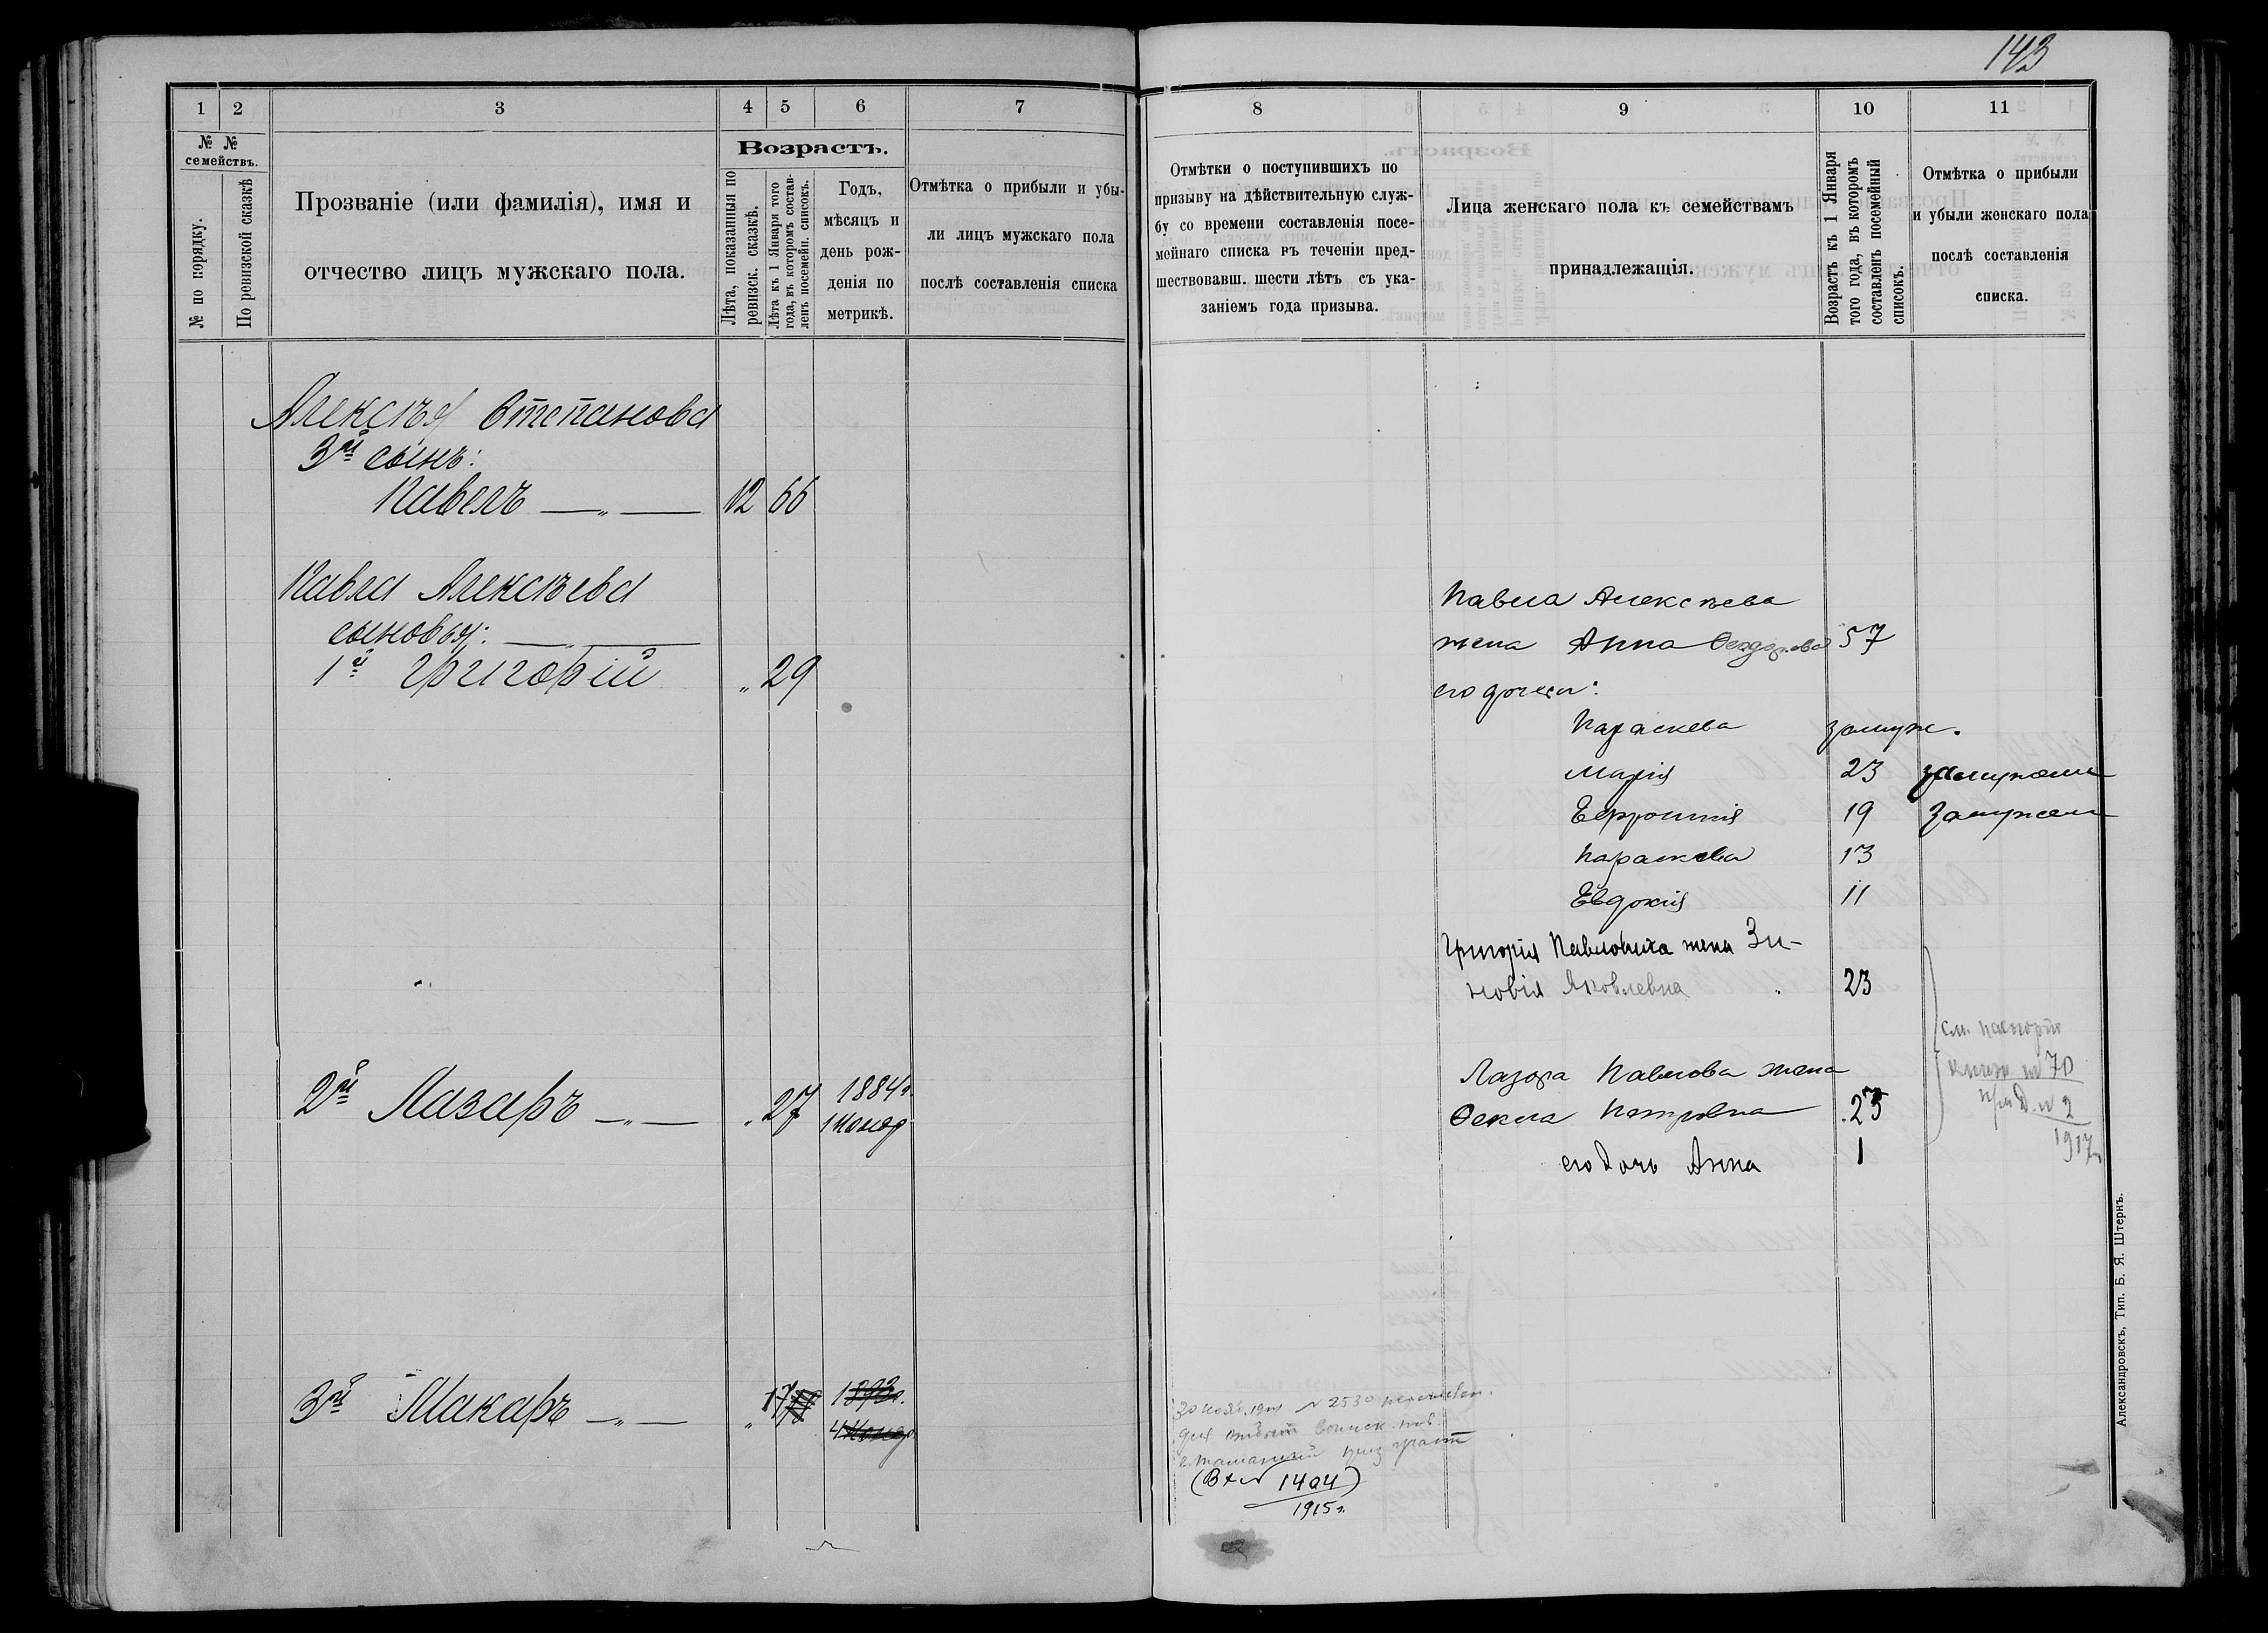 143
1 2 3 4 5 6 7
№ №
семействъ.
№ по порядку.
По ревизской сказкѣ
Прозваніе (или фамилія), имя и
отчество лицъ мужскаго пола.
Возрастъ.
Лѣта, показанныя по
ревизск. сказкѣ.
Лѣта къ 1 Января того
года, въ которомъ состав-
ленъ посемейн. списокъ.
Годъ,
мѣсяцъ и
день рож-
денія по
метрикѣ.
Отмѣтка о прибыли и убы-
ли лицъ мужскаго пола
послѣ составленія списка
Алексѣя Степанова
3й сынъ:
Павелъ —„— 12 66
Павла Алексѣева
сыновья:
1й Григорій „ 29
2й Лазарь —„— „ 27 1884г.
3й Макаръ —„— „ 17
8 9 10 11
Отмѣтки о поступившихъ по
призыву на дѣйствительную служ-
бу со времени составленія посе-
мейнаго списка въ теченіи пред-
шествовавш. шести лѣтъ съ ука-
заніемъ года призыва.
Лица женскаго пола къ семействамъ
принадлежащія.
Возрастъ къ 1 Января
того года, въ которомъ
составленъ посемейный
списокъ.
Отмѣтка о прибыли
и убыли женскаго пола
послѣ составленія
списка.
Павла Алексѣева
жена Анна Феодорова 57
его дочери:
Параскева замуж.
Марія 23 замужем
Ефросинія 19 Замужем
Параскева 13
Евдокія 11
Григорія Павловича жена Зи-
новія Яковлевна 23
Лазаря Павлова жена
Ѳекла Петровна 25
его дочь Анна 1
См. паспорт
книгу № 70
№ 2
1917г.
№ 2530
(Вх № 1404)
1915г.
Александровскъ, Тип. Б. Я. Штернъ.